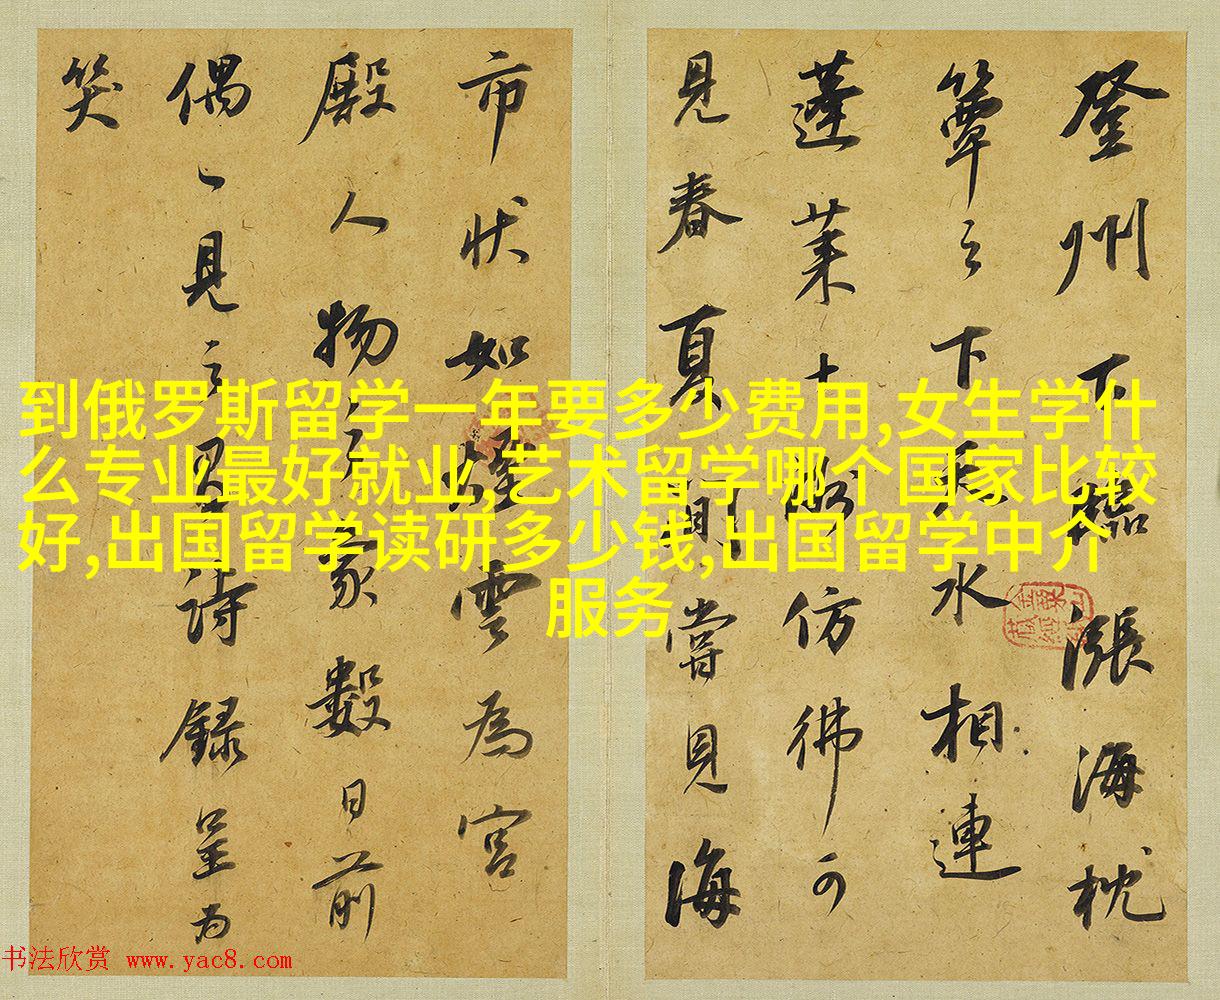 登州下臨漲海枕
簟之下天水相連
蓬莱十仿彿可
見春夏間嘗見海
市状如煙雲為宮
殿人物之象數日前
偶〻見之詩録呈為
笑
到俄罗斯留学一年要多少费用,女生学什
么专业最好就业,艺术留学哪个国家比较
好,出国留学读研多少钱,出国留学中介
服务
书法欣赏 www.yac8.com